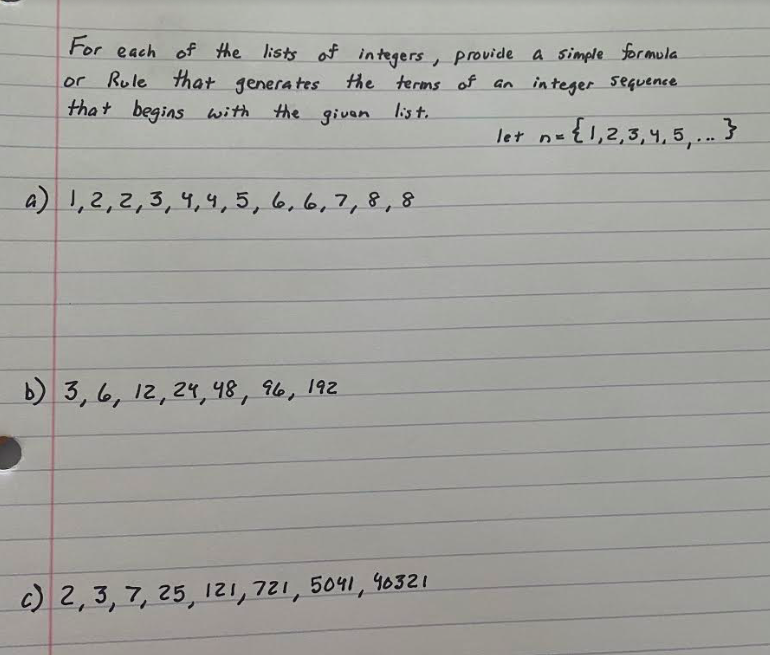 For each of the lists of integers, provide a simple formula
or Rule that generates the terms of an integer sequence
that begins with the givan list.
let n = {1,2,3,4,5,...}
a) 1,2,2,3,4,4,5,6,6,7,8,8
b) 3,6,12,24,48,96,192
c) 2,3,7,25,121,721,5041,40321